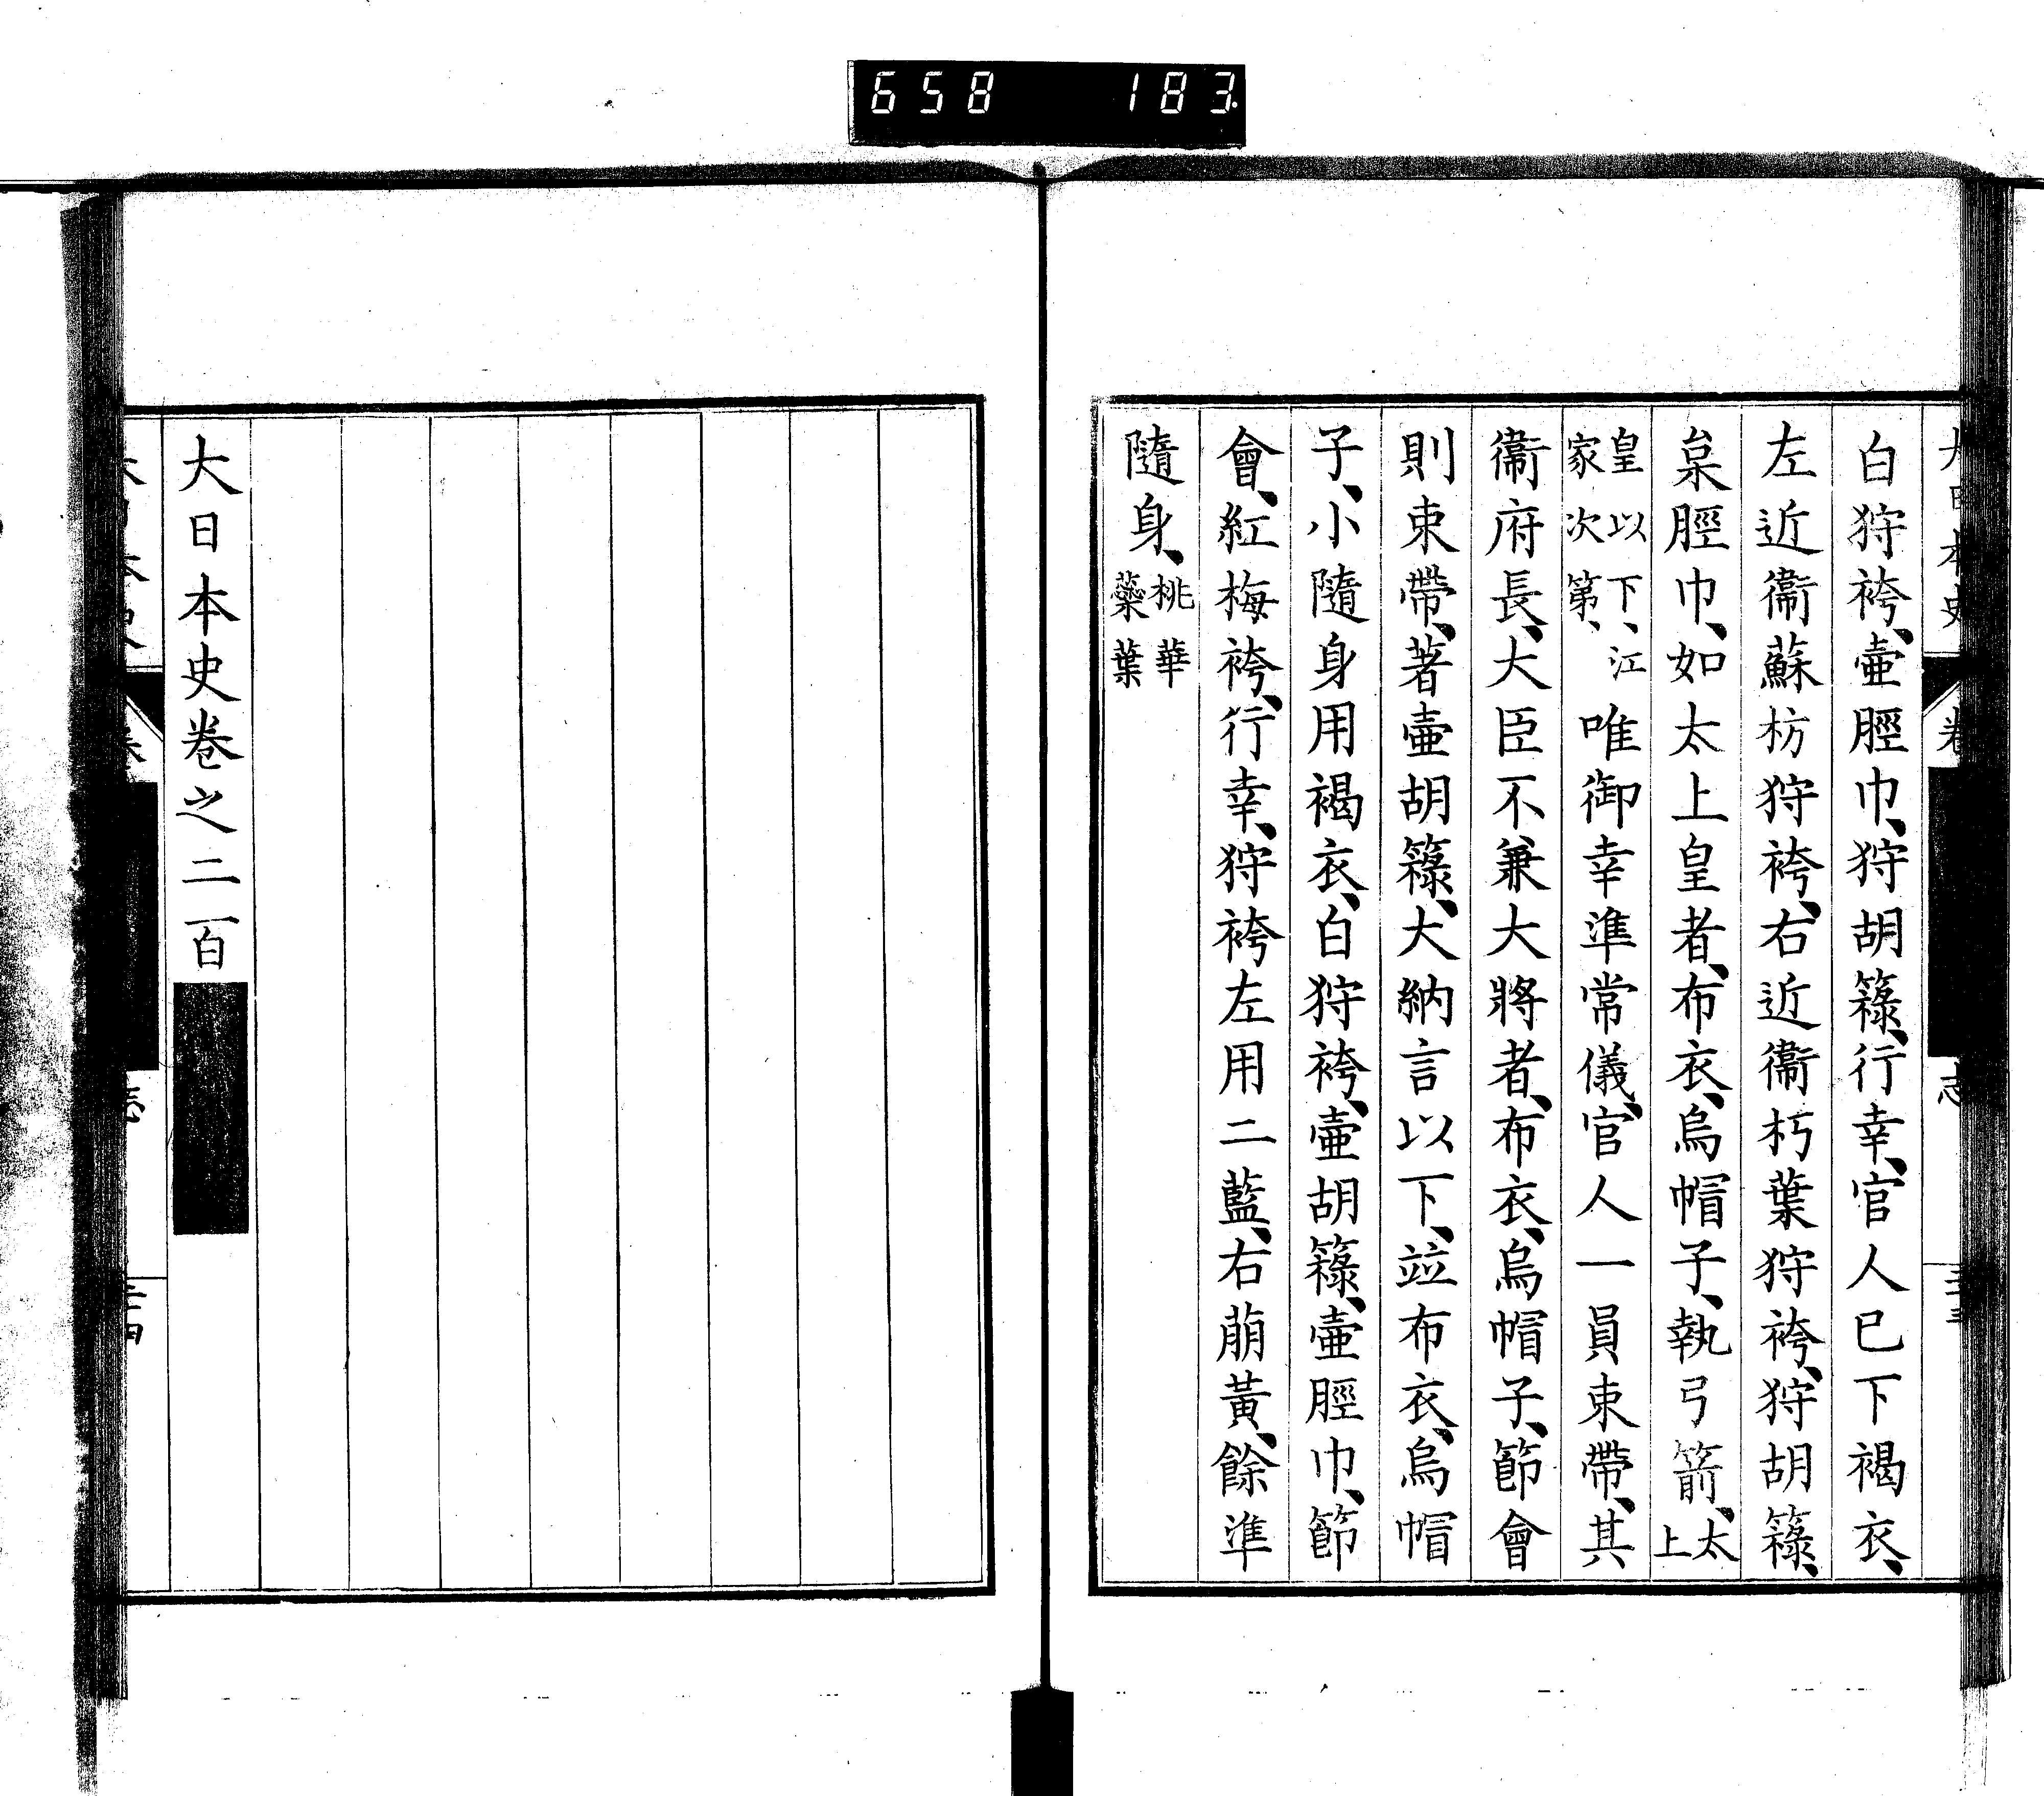 658 183
白狩袴、壷脛巾、狩胡籙、行幸、官人已下褐衣、
左近衞蘇枋狩袴、右近衞朽葉狩袴、狩胡籙、
枲脛巾、如太上皇者、布衣、烏帽子、執弓箭、太上
皇以下、江家次第、唯御幸準常儀、官人一員束帶、其
衞府長、大臣不兼大將者、布衣、烏帽子、節會
則束帶、著壷胡籙、大納言以下、竝布衣、烏帽
子、小隨身用褐衣、白狩袴、壷胡籙、壷脛巾、節
會、紅梅袴、行幸、狩袴左用二藍、右萠黃、餘準
隨身、桃華蘂葉
大日本史卷之二百